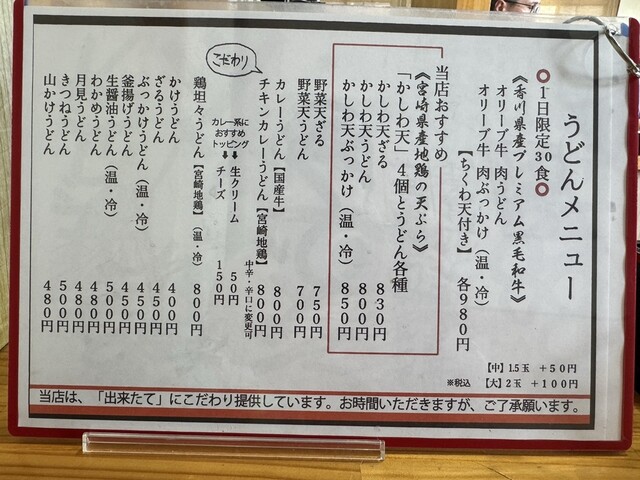 うどんメニュー
○1日限定30食○
《香川県産プレミアム黒毛和牛》
オリーブ牛 肉うどん
オリーブ牛 肉ぶっかけ（温・冷）
【ちくわ天付き】各980円
当店おすすめ
《宮崎県産地鶏の天ぷら》
「かしわ天」4個とうどん各種
かしわ天ざる 830円
かしわ天うどん 800円
かしわ天ぶっかけ（温・冷） 850円
野菜天ざる 750円
野菜天うどん 700円
こだわり
カレーうどん【国産牛】 800円
チキンカレーうどん【宮崎地鶏】 800円
中辛・辛口に変更可
カレー系に
おすすめ
トッピング
生クリーム 50円
チーズ 150円
鶏坦々うどん【宮崎地鶏】（温・冷） 800円
かけうどん 400円
ざるうどん 450円
ぶっかけうどん（温・冷） 450円
釜揚げうどん 450円
生醤油うどん（温・冷） 500円
わかめうどん 480円
月見うどん 480円
きつねうどん 500円
山かけうどん 480円
【中】1.5玉 +50円
※税込 【大】2玉 +100円
当店は、「出来たて」にこだわり提供しています。お時間いただきますが、ご了承願います。